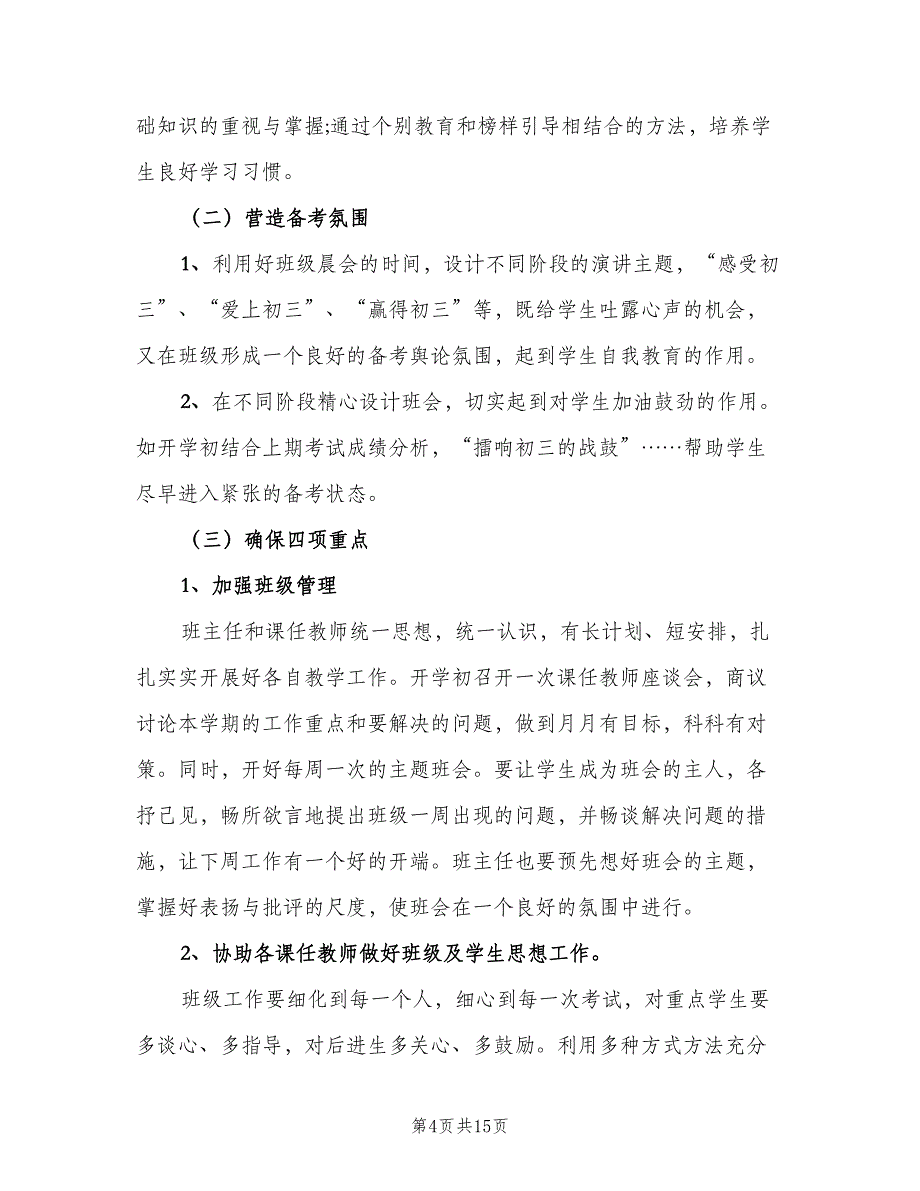 础知识的重视与掌握;通过个别教育和榜样引导相结合的方法，培养学
生良好学习习惯。
（二）营造备考氛围
1、利用好班级晨会的时间，设计不同阶段的演讲主题，“感受初
三”、“爱上初三”、“赢得初三”等，既给学生吐露心声的机会，
又在班级形成一个良好的备考舆论氛围，起到学生自我教育的作用。
2、在不同阶段精心设计班会，切实起到对学生加油鼓劲的作用。
如开学初结合上期考试成绩分析，“擂响初三的战鼓”……帮助学生
尽早进入紧张的备考状态。
（三）确保四项重点
1、加强班级管理
班主任和课任教师统一思想，统一认识，有长计划、短安排，扎
扎实实开展好各自教学工作。开学初召开一次课任教师座谈会，商议
讨论本学期的工作重点和要解决的问题，做到月月有目标，科科有对
策。同时，开好每周一次的主题班会。要让学生成为班会的主人，各
抒己见，畅所欲言地提出班级一周出现的问题，并畅谈解决问题的措
施，让下周工作有一个好的开端。班主任也要预先想好班会的主题，
掌握好表扬与批评的尺度，使班会在一个良好的氛围中进行。
2、协助各课任教师做好班级及学生思想工作。
班级工作要细化到每一个人，细心到每一次考试，对重点学生要
多谈心、多指导，对后进生多关心、多鼓励。利用多种方式方法充分
第4页共15页